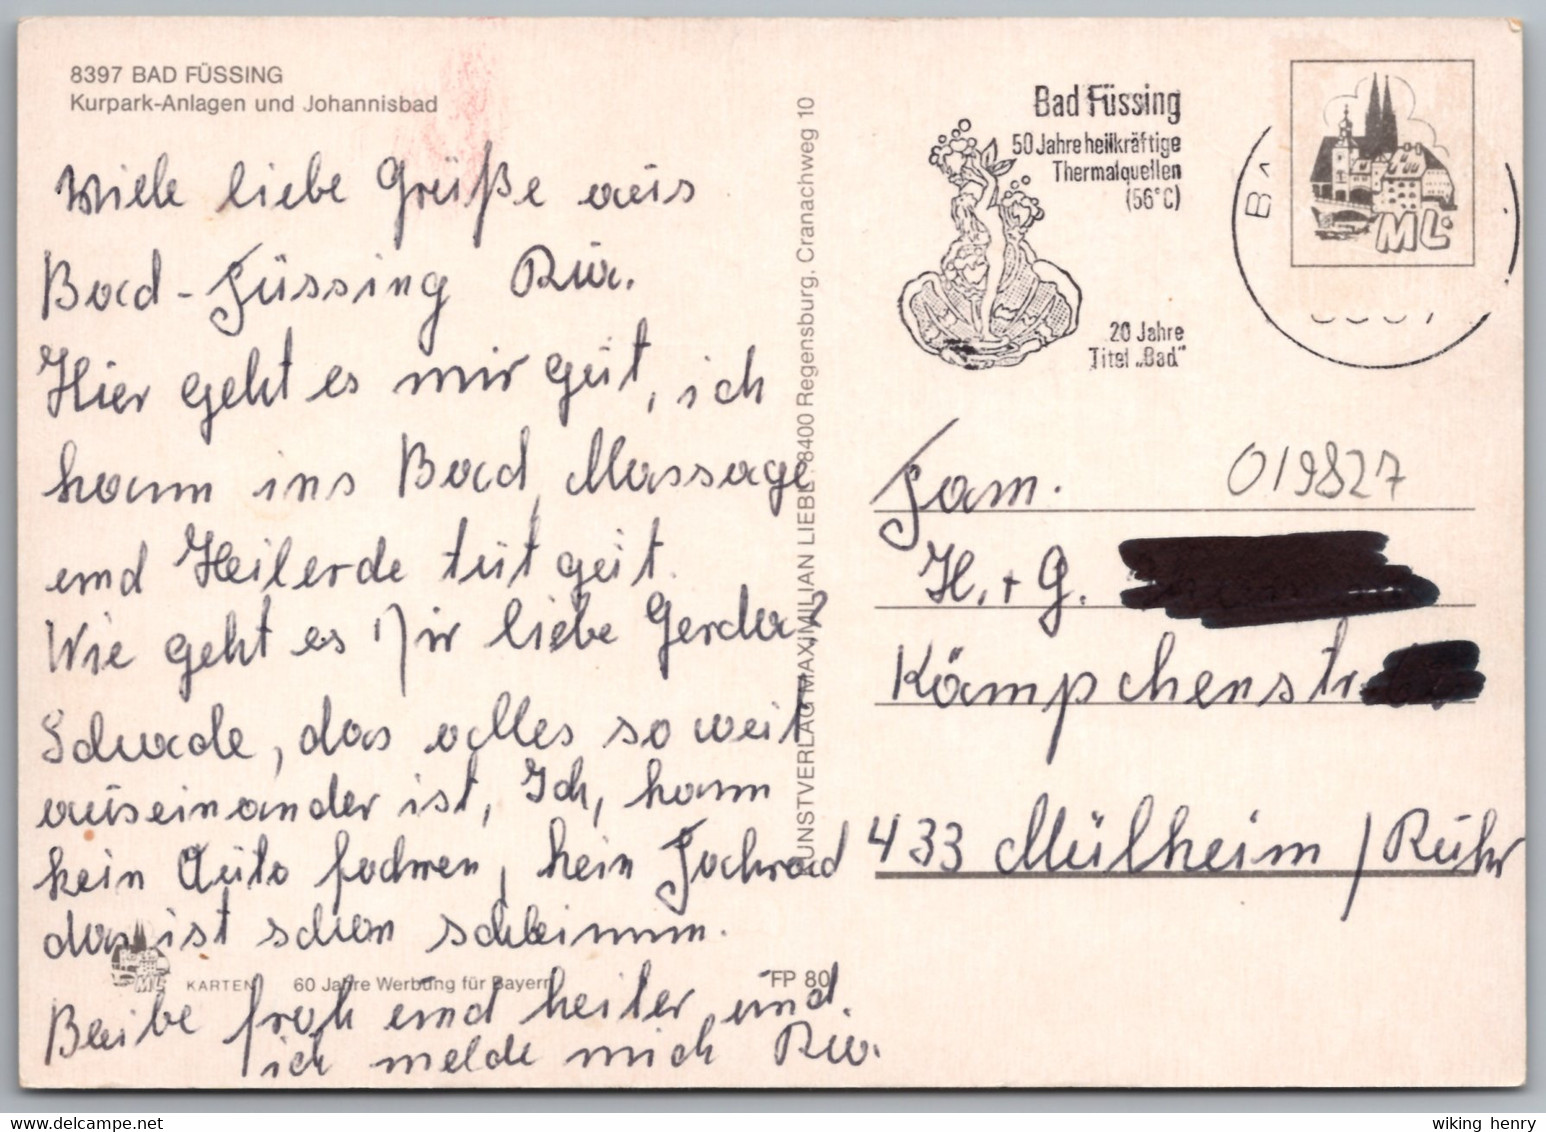 8397 BAD FÜSSING
Kurpark-Anlagen und Johannisbad
Viele liebe Grüße aus
Bad-Füssing Ria.
Hier geht es mir gut, ich
kann ins Bad, Massage
und Heilerde tut gut.
Wie geht es Dir liebe Gerda?
Schade, das alles so weit
auseinander ist, Ich, kann
kein Auto fahren, kein Fahrrad
das ist schon schlimm.
Bleibe froh und heiter und
ich melde mich Ria.
KARTEN 60 Jahre Werbung für Bayern FP 80
KUNSTVERLAG MAXIMILIAN LIEBL, 8400 Regensburg, Cranachweg 10
Bad Füssing
50 Jahre heilkräftige
Thermalquellen
(56°C)
20 Jahre
Titel „Bad"
ML
ML
019827
Fam.
H. + G.
Kämpchenstr.
433 Mülheim / Ruhr
wiking henry